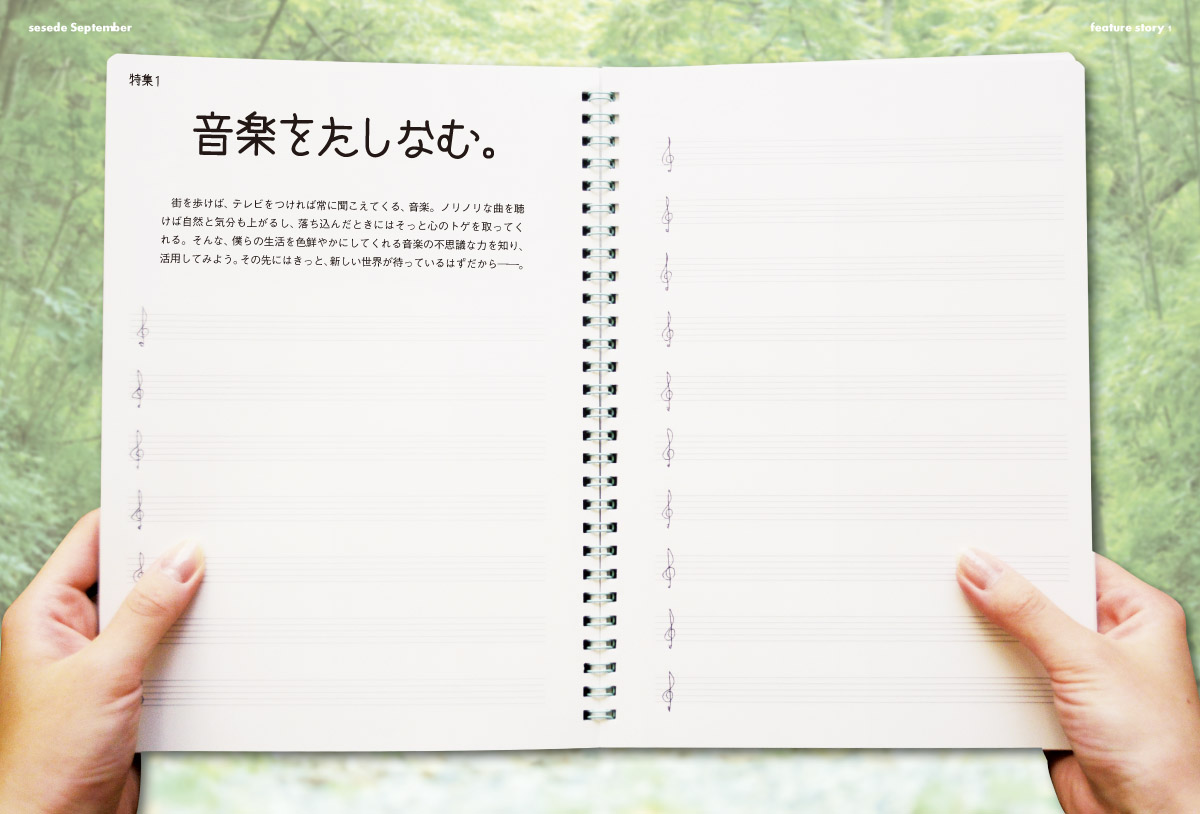 sesede September
feature story 1
特集1
音楽をたしなむ。
街を歩けば、テレビをつければ常に聞こえてくる、音楽。ノリノリな曲を聴
けば自然と気分も上がるし、落ち込んだときにはそっと心のトゲを取ってく
れる。そんな、僕らの生活を色鮮やかにしてくれる音楽の不思議な力を知り、
活用してみよう。その先にはきっと、新しい世界が待っているはずだから――。